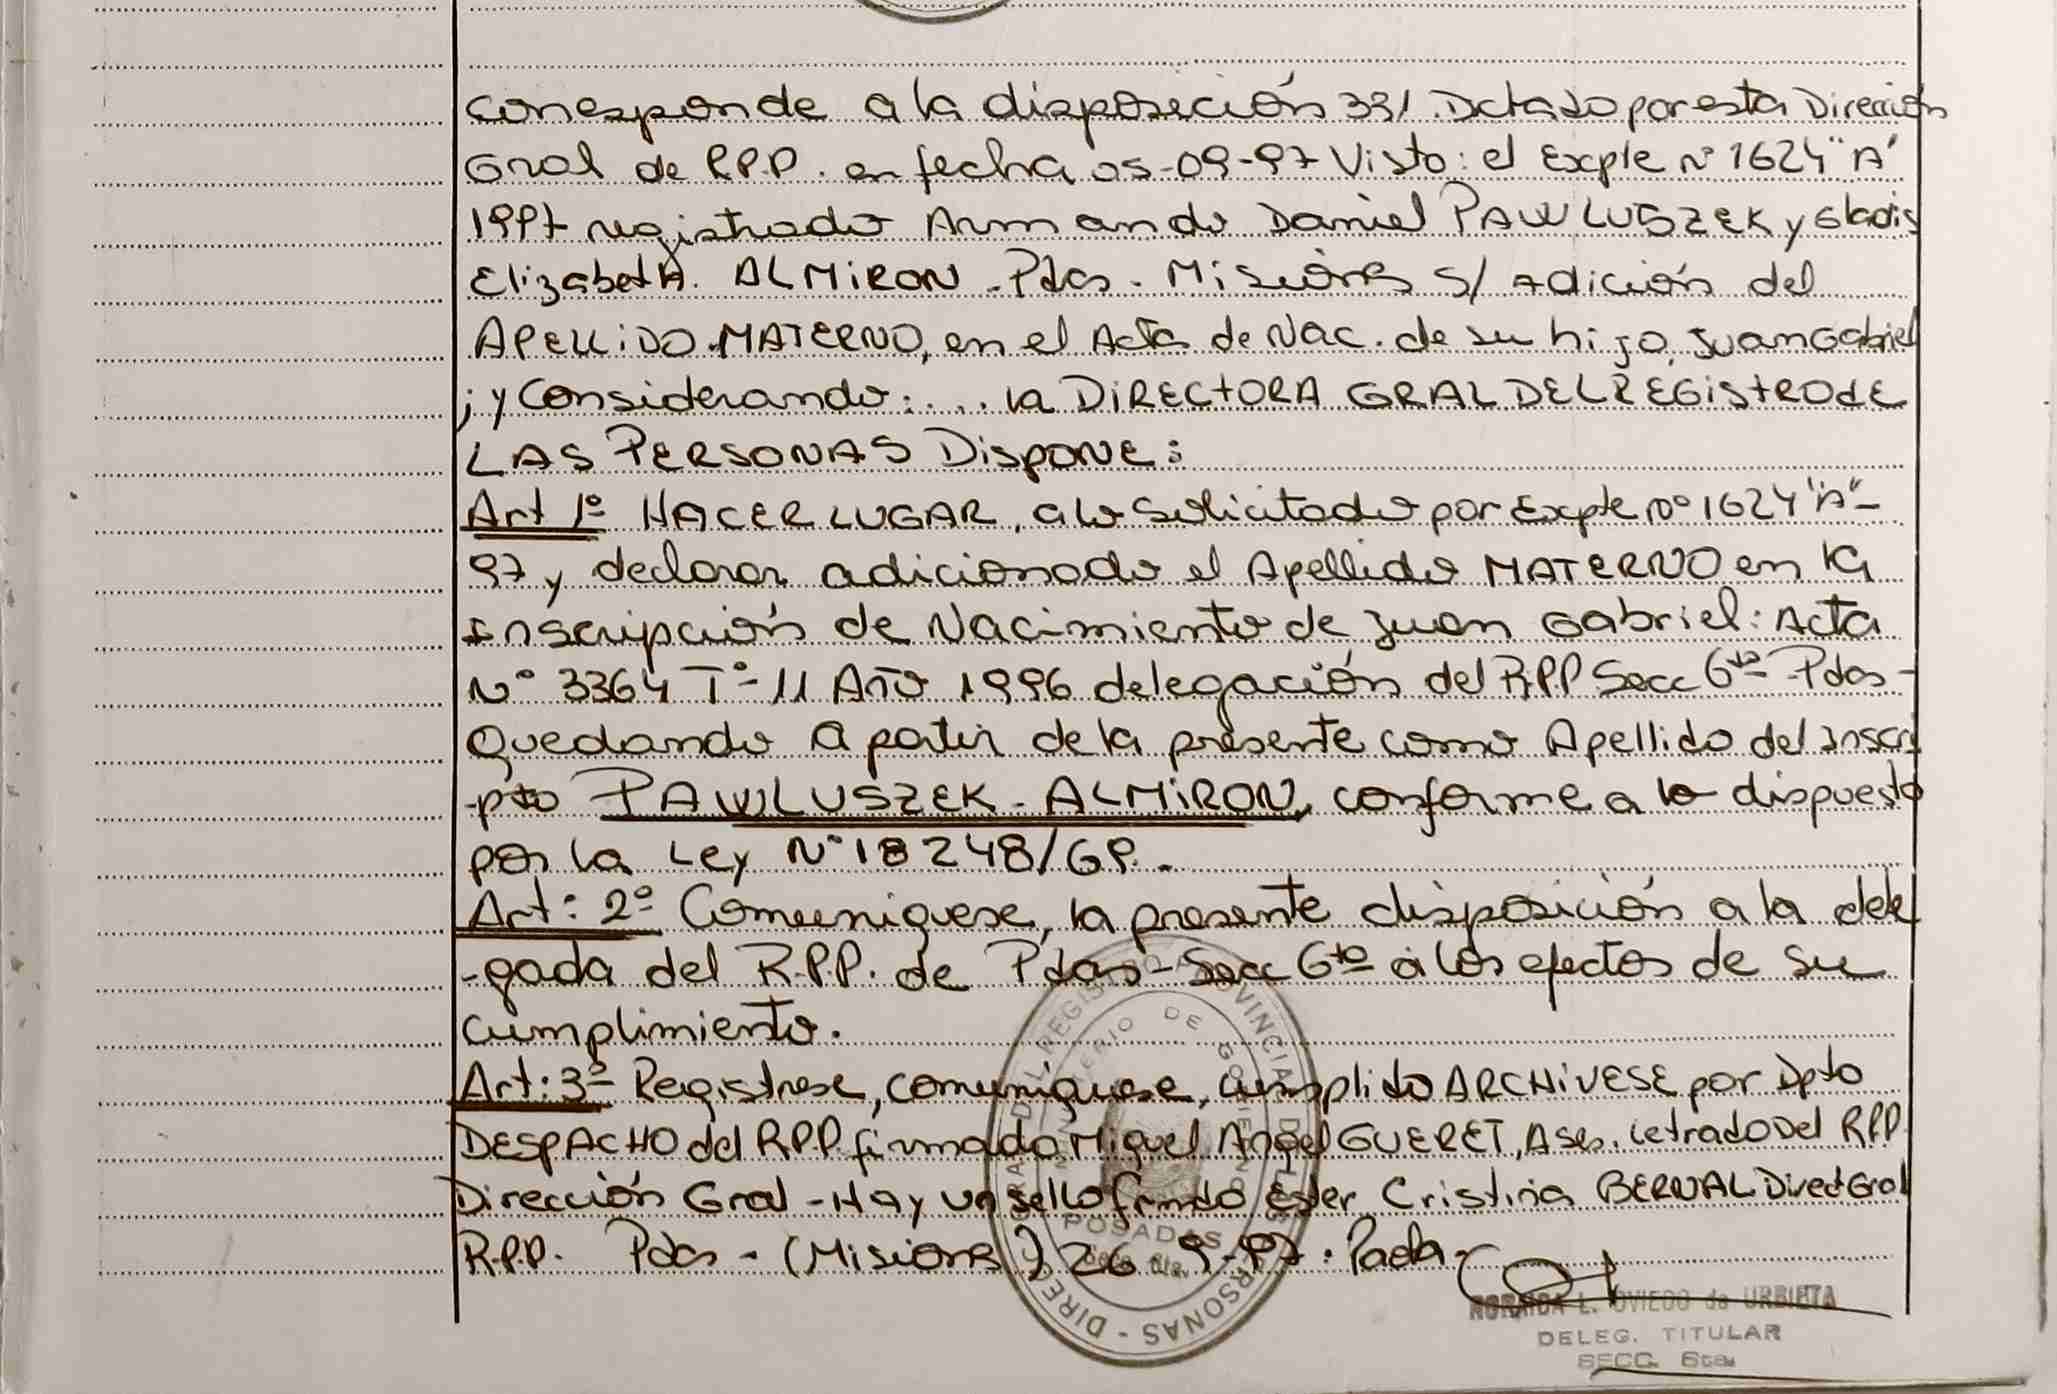 Corresponde a la disposición 331. Dctado por esta Dirección
Gral de R.P.P. en fecha 05-09-97 Visto: el Expte Nº 1624 "A"
1997 registrado Armando Daniel PAWLUSZEK y Gladis
Elizabeth. ALMIRON - Pdas. Misiones s/ Adición del
APELLIDO MATERNO, en el Acta de Nac. de su hijo Juan Gabriel
; y Considerando: .... la DIRECTORA GRAL DEL REGISTRO DE
LAS PERSONAS DISPONE:
Art 1º HACER LUGAR, a lo solicitado por Expte Nº 1624 "A"-
97 y declarar adicionado el Apellido MATERNO en la
Inscripción de Nacimiento de Juan Gabriel: Acta
Nº 3364 Tº 11 Año 1996 delegación del R.P.P Secc 6ta Pdas-
Quedando a partir de la presente como Apellido del Inscri
-pto PAWLUSZEK - ALMIRON, conforme a lo dispuesto
por la Ley Nº 18248/69.-
Art: 2º Comuniquese, la presente disposición a la dele
-gada del R.P.P. de Pdas - Secc 6ta a los efectos de su
cumplimiento.
Art: 3º Registrese, comuníquese, cumplido ARCHIVESE por Dpto
DESPACHO del R.P.P. firmado Miguel Angel GUERET, Ases. Letrado Del R.P.P
Dirección Gral - Hay un sello firmdo Ester Cristina BERNAL Direct Gral
R.P.P. Pdas - (Misiones) 26-9-97.
L. OVIEDO de URBIETA
DELEG. TITULAR
SECC. 6ta
DIRECCION GRAL. DEL REGISTRO PROVINCIAL DE LAS PERSONAS
MINISTERIO DE GOBIERNO
POSADAS